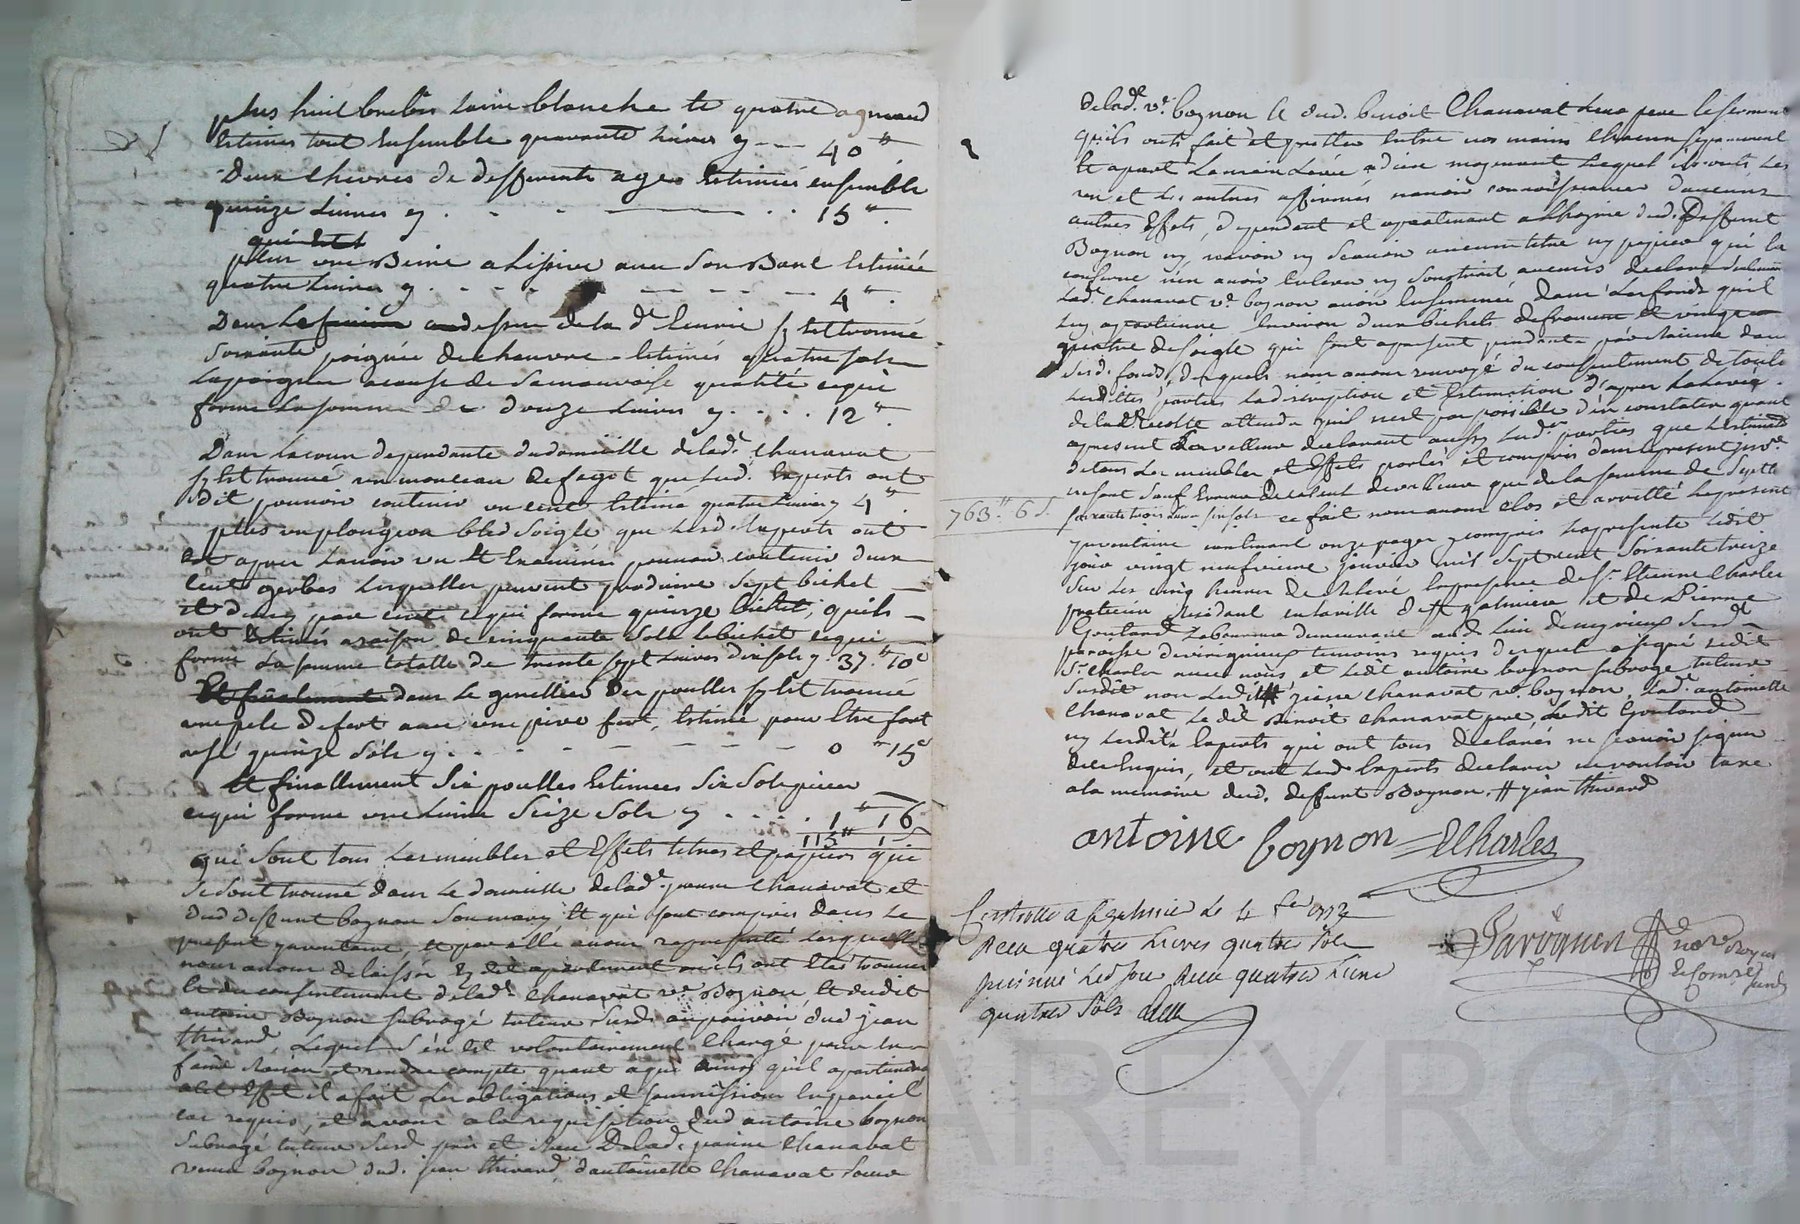 plus huit brebis laine blanche et quatre agneaud
Estimés tout Ensemble quarante livres cy --- 40 "
Deux Chevres de defferents ages Estimées ensemble
quinze Livres cy . - - - . . 15 "
plus une Benne a lissive avec son Banc Estimée
quatre Livres cy . - - - - 4 "
Dans au dessus de la de Ecurie sy Est trouvé
Soixante poignée de chanvre Estimés quatre sols
la poignée a cause de sa mauvaise qualité ce qui
forme la somme de douze Livres cy . . . . 12 "
Dans la cour dependante du domicille de lade Chanavat
sy Est trouvé un monceau de fagot que lesd. Experts ont
dit pouvoir contenir un cent Estimé quatre Livres 4 "
plus un plongeon bled Soigle que lesd. Experts ont
apres l'avoir vu Et Examiné pouvoir contenir deux
cent gerbes Lesquelles peuvent produire sept bichet
et demy par cent ce qui forme quinze bichet, qu'ils
ont Estimés a raison de cinquante sols le bichet ce qui
forme La somme totalle de trente sept Livres dix sols cy . 37 " 10 s
Et finalement dans le genillier des poulles sy Est trouvé
une pele de fert avec une pive fert, Estimé pour Etre fort
usé quinze sols cy - - - - - 0 " 15 s
Et finallement Six poulles Estimees Six Sols piece
ce qui forme une Livre Seize Sols cy . . . . 1 " 16
115 " 1
qui sont tous Les meubles et Effets titres et papiers qui
se sont trouvé dans le domicille de lade jeanne Chanavat et
dud deffunt bognon son mary Et qui sont compris dans le
present inventaire, et par elle avoir representé lesquels
nous avons delaissés Et du consentement de lade Chanavat ve Bognon, Et dudit
antoine Bognon subrogé tuteur Susd. au pouvoir dud jean
thivard, Lequel s'en Est volontairement Chargé pour en
faire Raison et rendre compte quand a qui ainsy qu'il apartiendra
a cet Effet il a fait Les obligations et soumissions En pareil
cas requis, et avons a la requisition dud antoine bognon
subrogé tuteur Susd. pris et Reçu De lade jeanne Chanavat
veuve bognon dud. jean thivard, d'antoinette Chanavat soeur
de lade ve bognon Et dud. benoit Chanavat leur pere le serment
qu'ils ont fait et prettés Entre nos mains Chacun separement
Et apart La main Levée a dieu moyenant Lequel ils ont, Les
uns et Les autres affirmés n'avoir connoissance d'aucuns
autres Effets, dependant et apartenant a l'hoirie dud. Deffunt
Bognon ny, n'avoir ny Scavoir aucun titre ny papier qui la
conserne n'en avoir Enlevé ny Soustrait aucuns declare
Lade Chanavat ve bognon avoir Ensemencé dans Les fonds qu'il
Luy apartienne Environ deux bichets de froment et vingt
quatre de Soigle qui sont apresent pendants par racine dans
Lesd. fonds, desquels nous avons renvoyé du consentement de toute
Lesdittes parties La description et Estimation d'apres La Levée
de lade Recolte attendu qu'il n'est pas possible d'en constater quant
apresent La valleur declarant aussy Lesdes parties que L'estimation
de tous Les meubles et Effets portés et compris dans le present invre
n'est sauf Erreur de calcul de valleur que de la somme de Sept Cent
763 " 6 s.
soixante trois Livres six sols ce fait nous avons clos et arretté Le present
inventaire contenant onze pages y compris La presente Ledit
jour vingt neufvieme janvier mil Sept cent Soixante treize
Sur Les cinq heures de Relevé En presence de Sr. Etienne Charles
praticien Residant en la ville de st galmier et de Pierre
Goutard Laboureur demeurant au lieu de Susd.
paroisse de temoins requis desquels a signé Ledit
Sr. Charles avec nous et Ledit antoine bognon subrogé tuteur
Susdit non Ledit jeane Chanavat ve bognon, Lade antoinette
Chanavat Le dit Benoit Chanavat pere, Le dit Goutard
ny Lesdits Experts qui ont tous declarés ne scavoir signer
de ce Enquis, et ont Lesd Experts declaré ne vouloir taxe
a la memoire dud. deffunt Bognon. # jean thivard
antoine bognon ECharles
Controllé a st galmier Le 4 fer 1773
Reçu quatres Livres quatres Sols
Insinué Led jour Reçu quatres Livres
quatres Sols
nore Royal
AREYRON